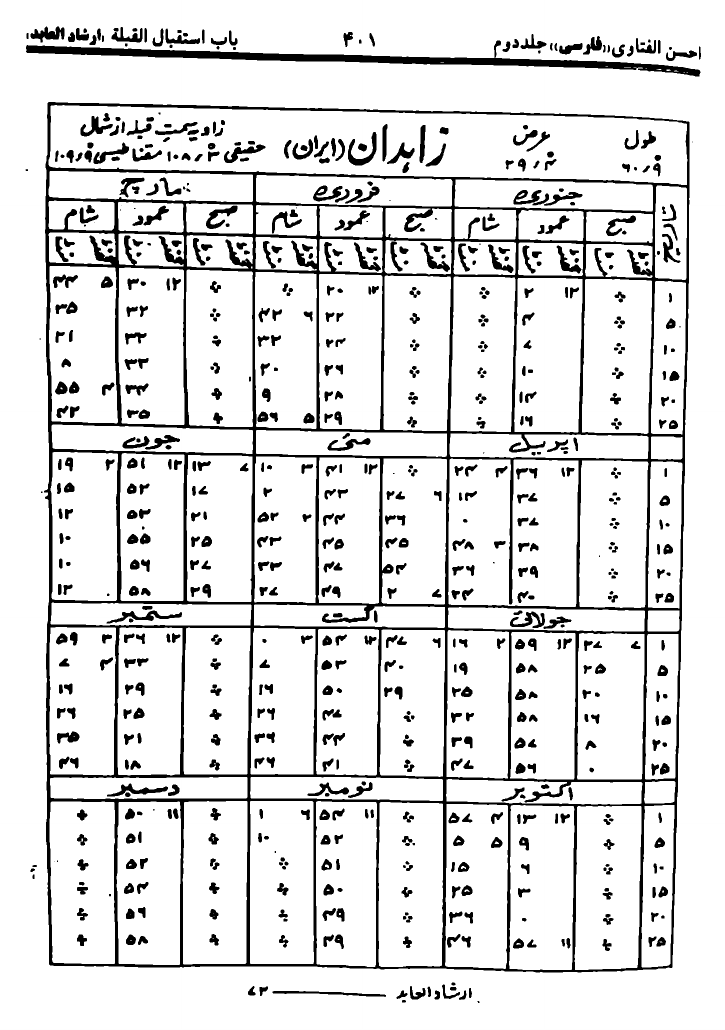 احسن الفتاوى ((فارسى)) جلد دوم ۴۰۱ باب استقبال القبلة (ارشاد العابد)
طول ۶۰٫۹ عرض ۲۹٫۴ زاہدان (ایران) زاویہ سمت قبلہ از شمال
حقیقی ۱۰۸٫۴ مقناطیسی ۱۰۹٫۹
جنوری فروری مارچ
صبح عمود شام صبح عمود شام صبح عمود شام
۱ ÷ ۱۲ ۲ ÷ ÷ ۱۲ ۲۰ ÷ ÷ ۱۲ ۳۰ ۵ ۴۴
۵ ÷ ۴ ÷ ÷ ۲۲ ۶ ۴۳ ÷ ۳۲ ۳۵
۱۰ ÷ ۷ ÷ ÷ ۲۴ ۳۲ ÷ ۳۲ ۲۱
۱۵ ÷ ۱۰ ÷ ÷ ۲۶ ۲۰ ÷ ۳۳ ۸
۲۰ ÷ ۱۴ ÷ ÷ ۲۸ ۹ ÷ ۳۴ ۴ ۵۵
۲۵ ÷ ۱۶ ÷ ÷ ۲۹ ۵ ۵۶ ÷ ۳۵ ۴۲
اپریل مئی جون
۱ ÷ ۱۲ ۳۶ ۴ ۲۴ ÷ ۱۲ ۴۱ ۳ ۱۰ ۷ ۱۳ ۱۲ ۵۱ ۲ ۱۹
۵ ÷ ۳۷ ۱۴ ۶ ۲۷ ۴۳ ۲ ۱۷ ۵۲ ۱۵
۱۰ ÷ ۳۷ ۰ ۳۶ ۴۴ ۲ ۵۲ ۲۱ ۵۳ ۱۲
۱۵ ÷ ۳۸ ۳ ۴۸ ۴۵ ۴۵ ۴۳ ۲۵ ۵۵ ۱۰
۲۰ ÷ ۳۹ ۳۶ ۵۴ ۴۷ ۳۳ ۲۷ ۵۶ ۱۰
۲۵ ÷ ۴۰ ۲۴ ۷ ۲ ۴۹ ۲۷ ۲۹ ۵۸ ۱۲
جولائی اگست ستمبر
۱ ۷ ۲۷ ۱۲ ۵۹ ۲ ۱۶ ۶ ۴۷ ۱۲ ۵۴ ۳ ۰ ÷ ۱۲ ۳۶ ۳ ۵۹
۵ ۲۵ ۵۸ ۱۹ ۴۰ ۵۳ ۷ ÷ ۳۳ ۴ ۷
۱۰ ۲۰ ۵۸ ۲۵ ۲۹ ۵۰ ۱۶ ÷ ۲۹ ۱۶
۱۵ ۱۶ ۵۸ ۳۲ ÷ ۴۷ ۲۶ ÷ ۲۵ ۲۶
۲۰ ۸ ۵۷ ۳۹ ÷ ۴۴ ۳۶ ÷ ۲۱ ۳۵
۲۵ ۰ ۵۶ ۴۷ ÷ ۴۱ ۴۶ ÷ ۱۸ ۴۶
اکتوبر نومبر دسمبر
۱ ÷ ۱۲ ۱۳ ۴ ۵۷ ÷ ۱۱ ۵۴ ۶ ۱ ÷ ۱۱ ۵۰ ÷
۵ ÷ ۹ ۵ ۵ ÷ ۵۲ ۱۰ ÷ ۵۱ ÷
۱۰ ÷ ۶ ۱۵ ÷ ۵۱ ÷ ÷ ۵۲ ÷
۱۵ ÷ ۳ ۲۵ ÷ ۵۰ ÷ ÷ ۵۴ ÷
۲۰ ÷ ۰ ۳۶ ÷ ۴۹ ÷ ÷ ۵۶ ÷
۲۵ ÷ ۱۱ ۵۷ ۴۶ ÷ ۴۹ ÷ ÷ ۵۸ ÷
ارشاد العابد ــــــــ ۷۳